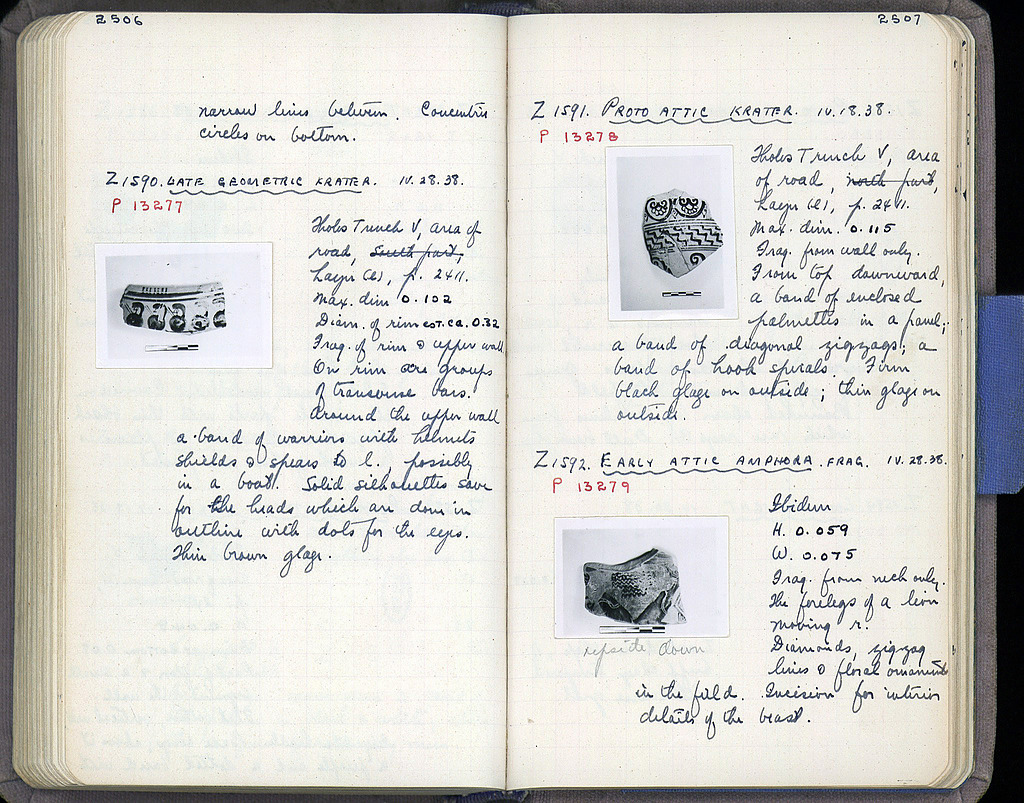 2506
narrow lines between. Concentric
circles on bottom.
Z 1590. LATE GEOMETRIC KRATER. IV. 28. 38.
P 13277
Tholos Trench V, area of
road, south part,
Layer (e), p. 2411.
Max. dim 0.102
Diam. of rim est. ca. 0.32
Frag. of rim & upper wall
On rim are groups
of transverse bars.
Around the upper wall
a band of warriors with helmets
shields & spears to l., possibly
in a boat. Solid silhouettes save
for the heads which are done in
outline with dots for the eyes.
Thin brown glaze.
2507
Z 1591. PROTO ATTIC KRATER. IV. 18. 38.
P 13278
Tholos Trench V, area
of road, north part,
Layer (e), p. 2411.
Max. dim. 0.115
Frag. from wall only.
From top downward,
a band of enclosed
palmettes in a panel;
a band of diagonal zigzags; a
band of hook spirals. Firm
black glaze on outside; thin glaze on
outside.
Z 1592. EARLY ATTIC AMPHORA. FRAG. IV. 28. 38.
P 13279
Ibidem
H. 0.059
W. 0.075
Frag. from neck only.
The forelegs of a lion
moving r.
Diamonds, zigzag
lines & floral ornaments
upside down
in the field. Incision for interior
details of the beast.